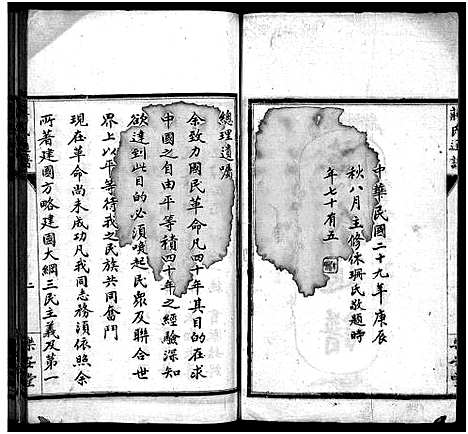 蔣氏通譜
中華民國二十九年庚辰
秋八月主修休珊氏敬題時
年七十有五
樂安堂
總理遺囑
余致力國民革命凡四十年其目的在求
中國之自由平等積四十年之經驗深知
欲達到此目的必須喚起民眾及聯合世
界上以平等待我之民族共同奮鬥
現在革命尚未成功凡我同志務須依照余
所著建國方略建國大綱三民主義及第一
二
樂安堂